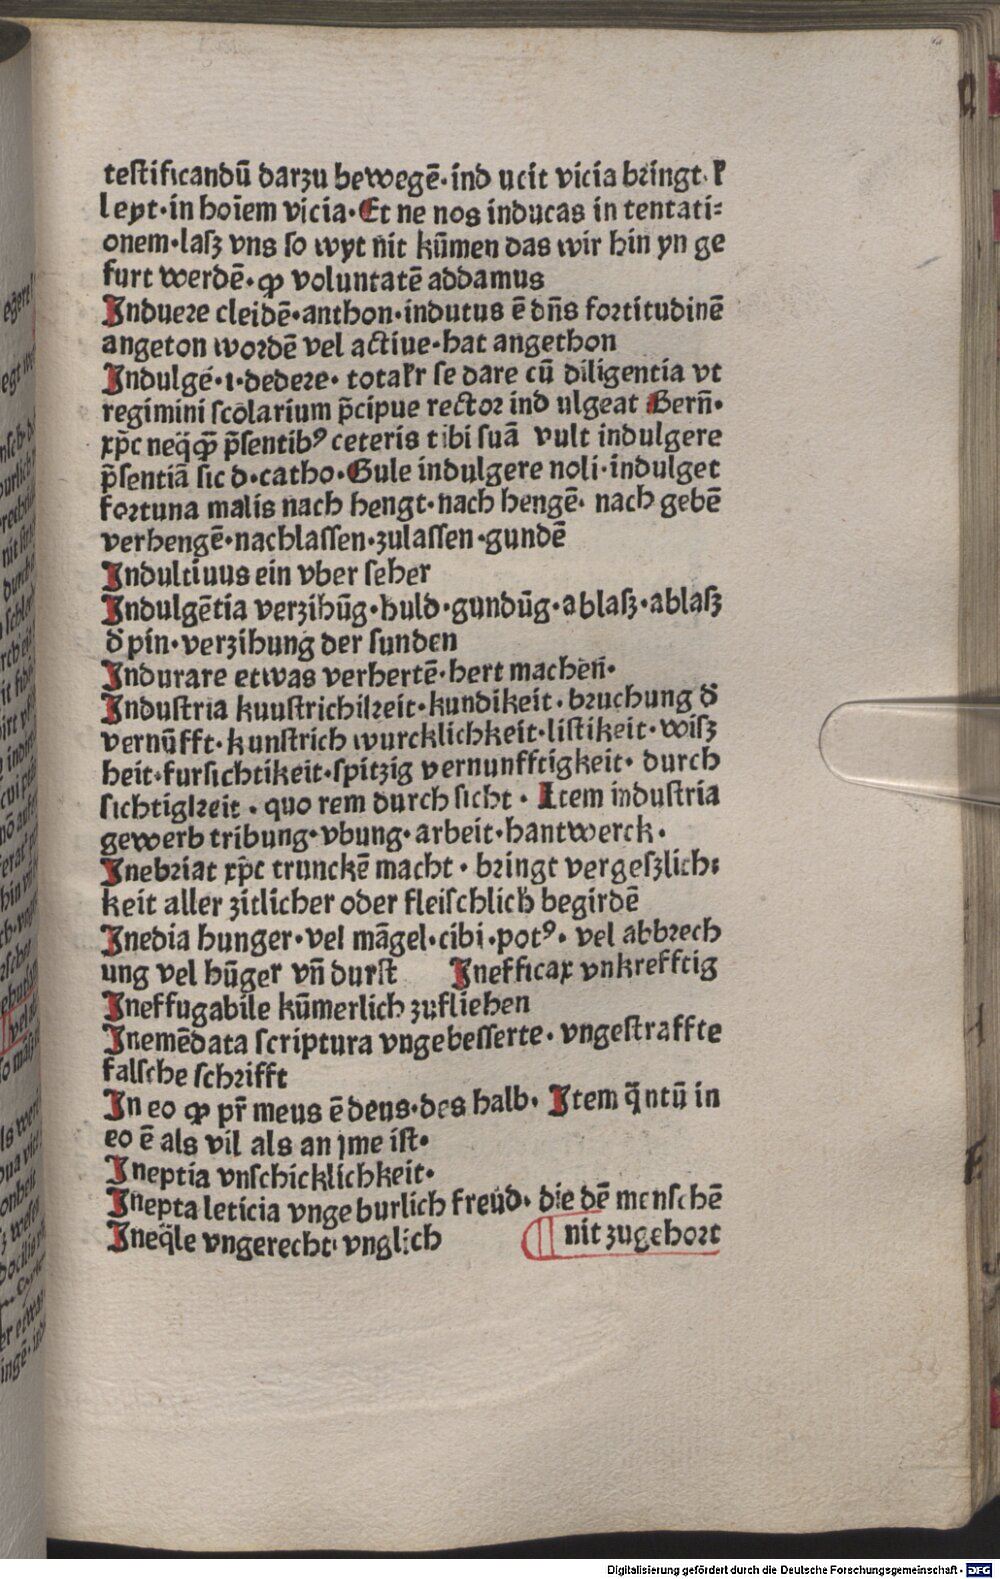 testificandū darzu bewegē·ind ucit vicia bringt·ꝉ
leyt·in hoīem vicia·Et ne nos inducas in tentati⸗
onem·lasz vns so wyt nit kūmen das wir hin yn ge
furt werdē·ꝙ voluntatē addamus
Induere cleidē·anthon·indutus ē dn̄s fortitudinē
angeton wordē vel actiue·hat angethon
Indulgē·i·dedere·totalr̄ se dare cū diligentia vt
regimini scolarium p̄cipue rector ind ulgeat Bern̄·
xp̄c neq̄q̄ꝫ p̄sentibꝰ ceteris tibi suā vult indulgere
p̄sentiā sic d·catho·Gule indulgere noli·indulget
fortuna malis nach hengt·nach hengē·nach gebē
verhengē·nachlassen·zulassen·gundē
Indultiuus ein vber seher
Indulgētia verzihūg·huld·gundūg·ablasz·ablasz
d̄ pin·verzihung der sunden
Indurare etwas verhertē·hert machen̄·
Industria kuustrichikeit·kundikeit·bruchung d̄
vernūfft·kunstrich wurcklichkeit·listikeit·wisz
heit·fursichtikeit·spitzig vernunfftigkeit·durch
sichtigkeit·quo rem durch sicht·Item industria
gewerb tribung·vbung·arbeit·hantwerck·
Inebriat xp̄c trunckē macht·bringt vergeszlich⸗
keit aller zitlicher oder fleischlich begirdē
Inedia hunger·vel māgel·cibi·potꝰ·vel abbrech
ung vel hūger vn̄ durst Inefficax vnkrefftig
Ineffugabile kūmerlich zufliehen
Inemēdata scriptura vngebesserte·vngestraffte
falsche schrifft
In eo ꝙ pr̄ meus ē deus·des halb·Item q̄ntū in
eo ē als vil als an jme ist·
Ineptia vnschicklichkeit·
Inepta leticia vnge burlich freud·die dē menschē
Ineq̄le vngerecht·vnglich nit zugehort
Digitalisierung gefördert durch die Deutsche Forschungsgemeinschaft · DFG